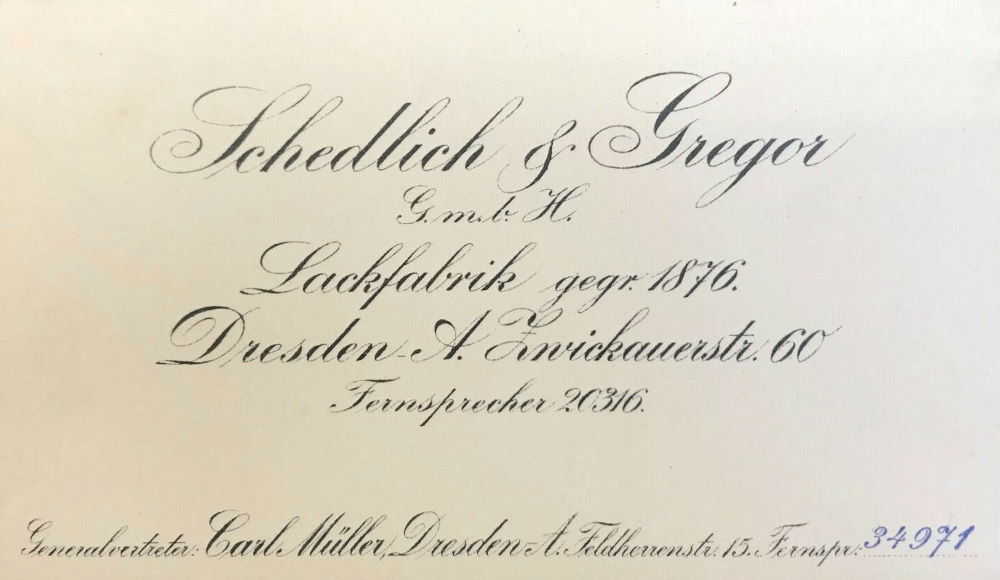 Schedlich & Gregor
G.m.b.H.
Lackfabrik gegr. 1876.
Dresden-A. Zwickauerstr. 60
Fernsprecher 20316.
Generalvertreter: Carl Müller, Dresden-A. Feldherrenstr. 15. Fernspr.: 34971